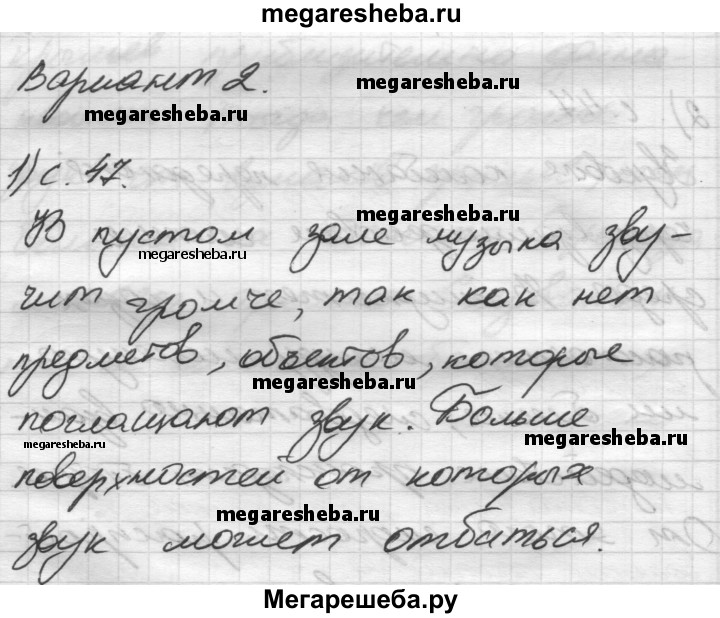 megaresheba.ru
Вариант 2.
megaresheba.ru
megaresheba.ru
1) с. 47.
megaresheba.ru
В пустом зале музыка зву-
megaresheba.ru
чит громче, так как нет
предметов, объектов, которые
megaresheba.ru
megaresheba.ru
поглащают звук. Больше
megaresheba.ru
megaresheba.ru
поверхностей от которых
megaresheba.ru
звук может отбиться.
Мегарешеба.ру